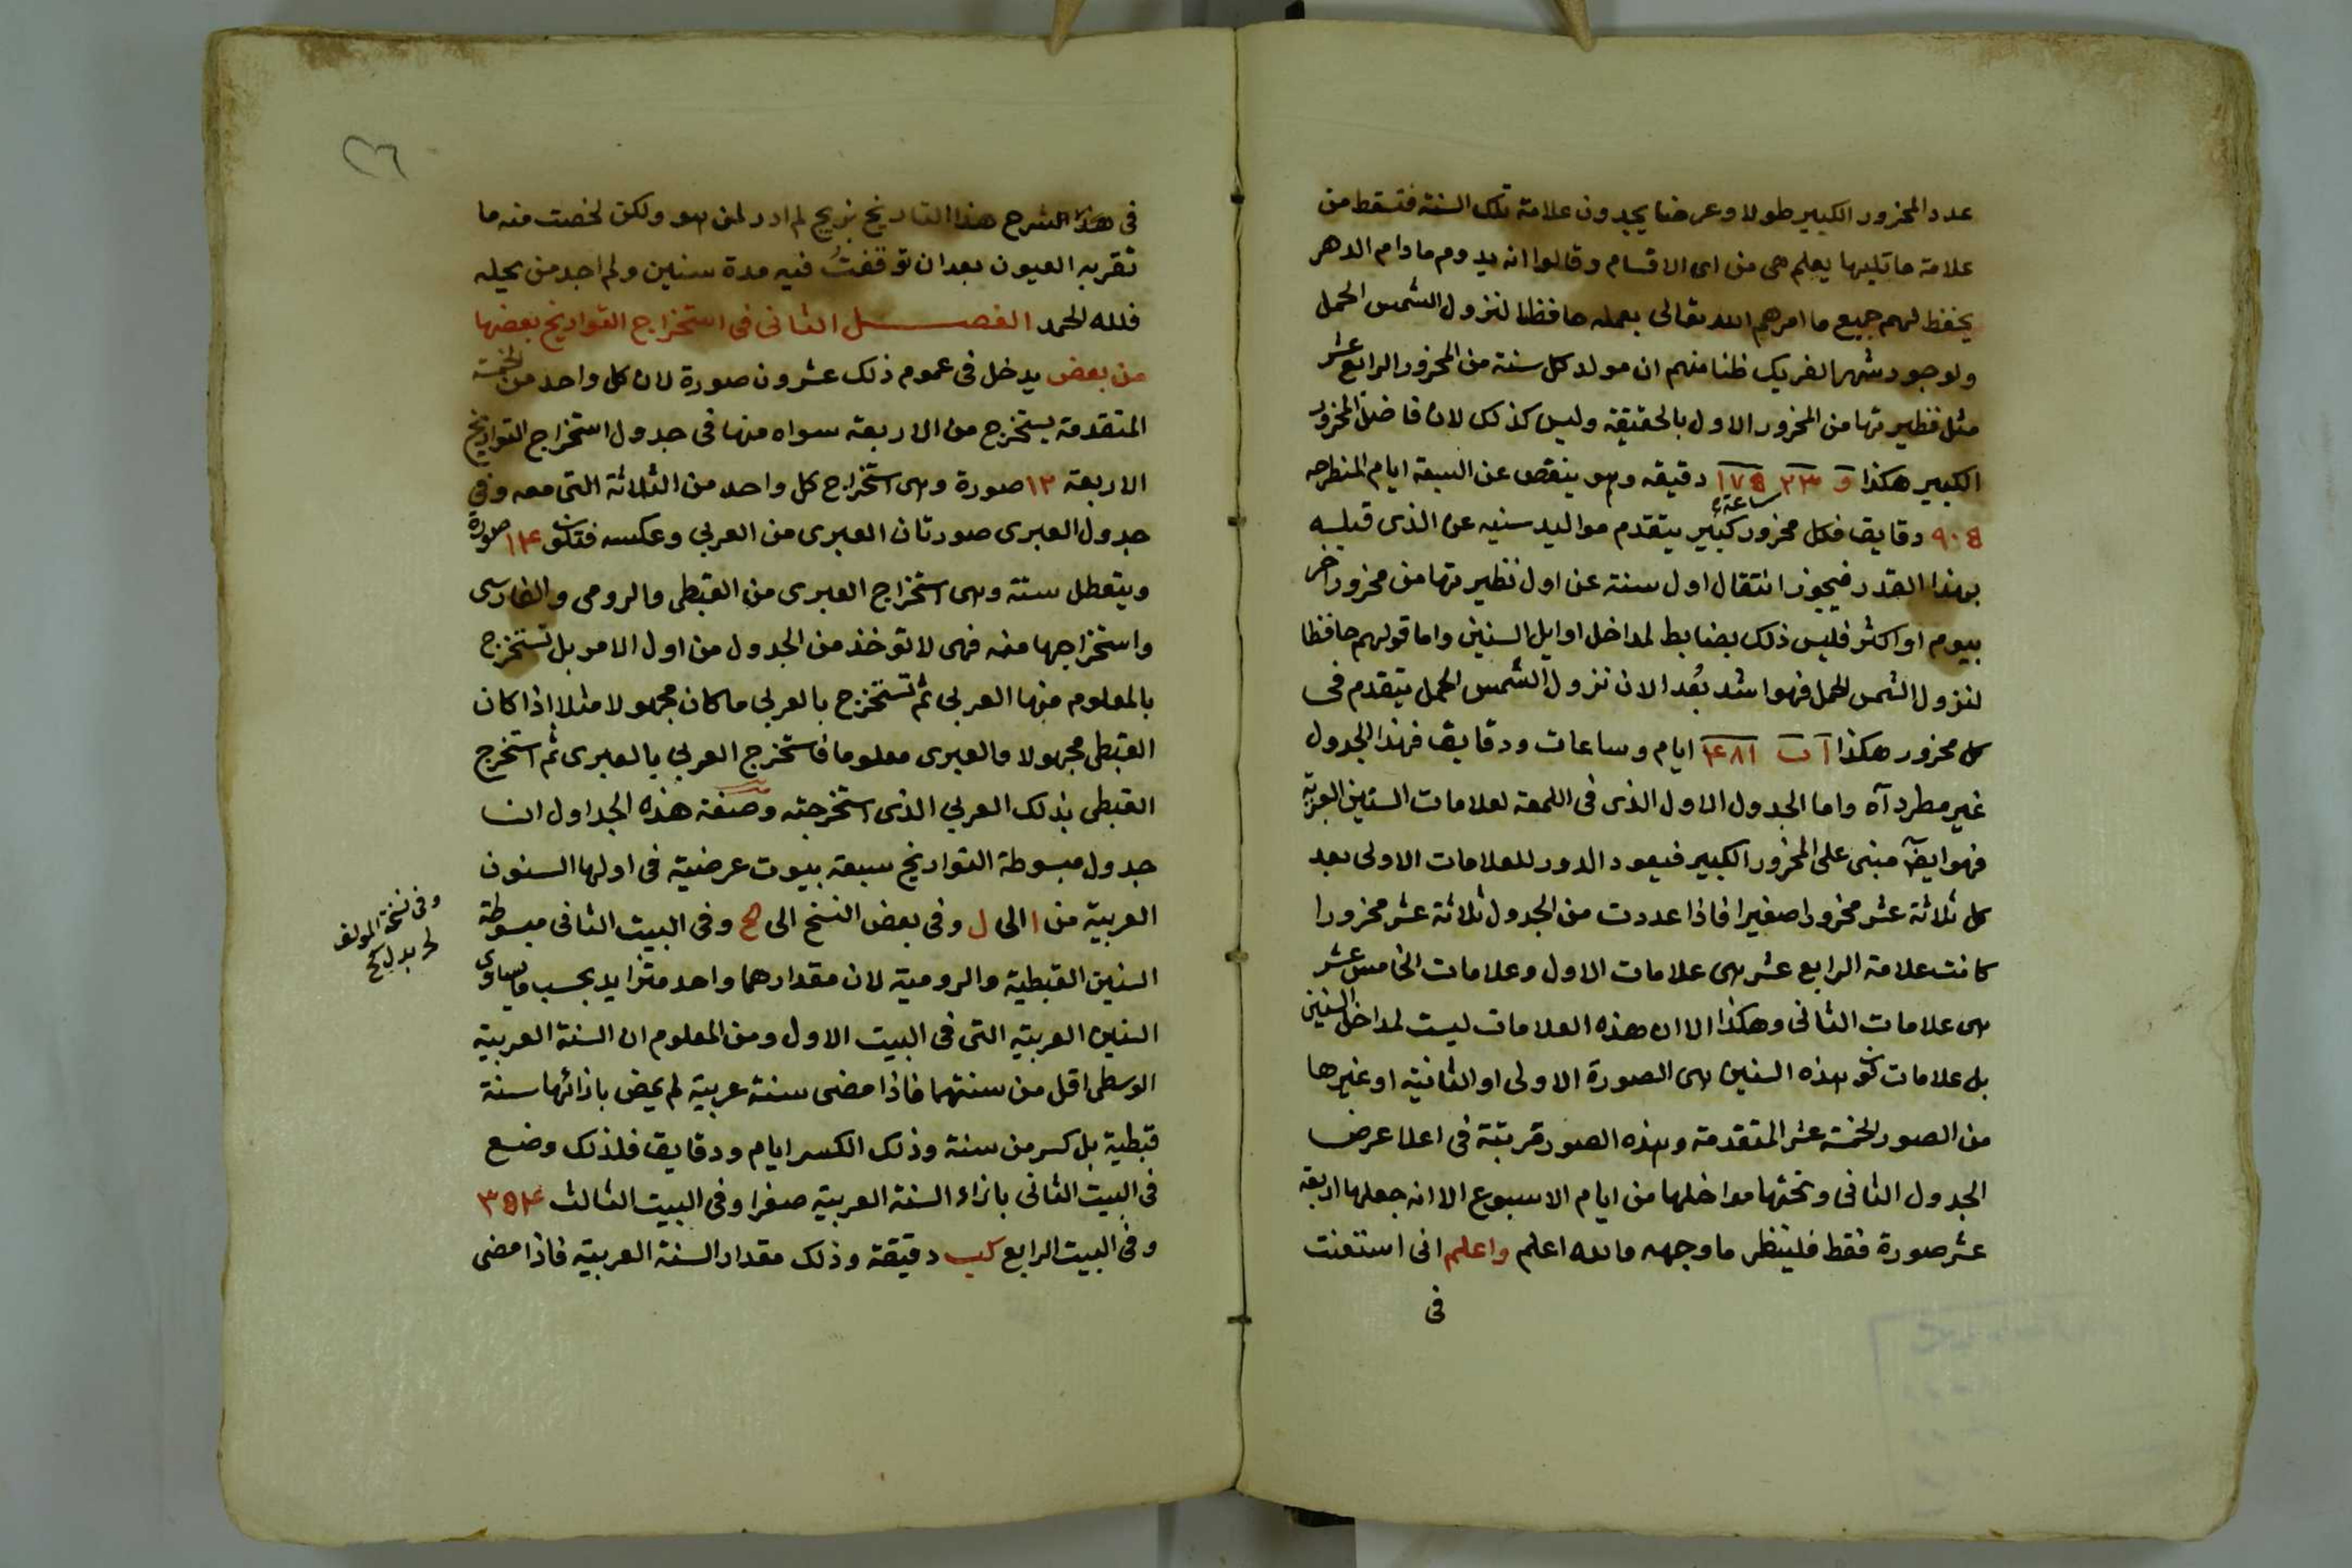 عدد المحزور الكبير طولا وعرضا يجدون علامة تلك السنة فتسقط من
علامة ما تليها يعلم هى من اى الاقسام وقالوا انه يدوم مادام الدهر
يحفظ لهم جميع ما امرهم الله تعالى بعمله حافظا لنزول الشمس الحمل
ولوجود شهر الفريك ظنا منهم ان مولد كل سنة من المحزور الرابع عشر
مثل نظيرتها من المحزور الاول بالحقيقة وليس كذلك لان فاضل المحزور
الكبير هكذا و ٢٣ ١٧٥ دقيقه وهو ينقص عن السبعة ايام المنطرحه
ساعة
٩٠٥ دقايق فكل محزور كبير يتقدم مواليد سنيه عن الذى قبله
بهذا القدر فيجوز انتقال اول سنة عن اول نظيرتها من محزور اخر
بيوم او اكثر فليس ذلك بضابط لمداخل اوايل السنين واما قولهم حافظا
لنزول الشمس الحمل فهو اشد بُعدا لان نزول الشمس الحمل يتقدم فى
كل محزور هكذا ا ب ٤٨١ ايام وساعات ودقايق فهذا الجدول
غير مطرد آه واما الجدول الاول الذى فى اللمعة لعلامات السنين العبرية
فهو ايضا مبنى على المحزور الكبير فيعود الدور للعلامات الاولى بعد
كل ثلاثة عشر محزورا صغيرا فاذا عددت من الجدول ثلاثة عشر محزورا
كانت علامة الرابع عشر هى علامات الاول وعلامات الخامس عشر
هى علامات الثانى وهكذا الا ان هذه العلامات ليست لمداخل السنين
بل علامات كون هذه السنين هى الصورة الاولى او الثانية او غيرها
من الصور الخمسة عشر المتقدمة وهذه الصور مرتبة فى اعلا عرض
الجدول الثانى وتحتها مداخلها من ايام الاسبوع الا انه جعلها اربعة
عشر صورة فقط فلينظر ما وجهه والله اعلم واعلم انى استعنت
فى
٢٦
فى هذا الشرح هذا التاريخ بزيج لم ادر لمن هو ولكن لخصت منه ما
تقر به العيون بعد ان توقفتُ فيه مدة سنين ولم اجد من يحله
فلله الحمد الفصـــل الثانى فى استخراج التواريخ بعضها
من بعض يدخل فى عموم ذلك عشرون صورة لان كل واحد من الخمسة
المتقدمة يستخرج من الاربعة سواه منها فى جدول استخراج التواريخ
الاربعة ١٢ صورة وهى استخراج كل واحد من الثلاثة التى معه وفى
جدول العبرى صورتان العبرى من العربي وعكسه فتكون ١٤ صورة
ويتعطل ستة وهى استخراج العبرى من القبطى والرومى والفارسى
واستخراجها منه فهى لا توخذ من الجدول من اول الامر بل تستخرج
بالمعلوم منها العربي ثم تستخرج بالعربي ما كان مجهولا مثلا اذا كان
القبطى مجهولا والعبرى معلوما فاستخرج العربي بالعبرى ثم استخرج
القبطى بذلك العربي الذى استخرجته وصفة هذه الجداول ان
جدول مبسوطة التواريخ سبعة بيوت عرضية فى اولها السنون
العربية من ا الى ل وفى بعض النسخ الى لح وفى البيت الثانى مبسوطة
السنين القبطية والرومية لان مقدارهما واحد متزايد بحسب مايساوى
السنين العربية التى فى البيت الاول ومن المعلوم ان السنة العربية
الوسطى اقل من سنتهما فاذا مضى سنة عربية لم يمض بازائها سنة
قبطية بل كسر من سنة وذلك الكسر ايام ودقايق فلذلك وضع
فى البيت الثانى بازاء السنة العربية صفرا وفى البيت الثالث ٣٥٤
وفى البيت الرابع كب دقيقة وذلك مقدار السنة العربية فاذا مضى
وفى نسخة المولف
بدل